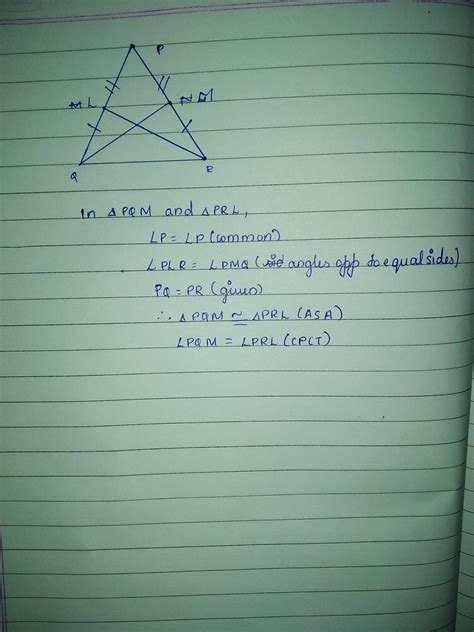 P
M L
M
Q
R
In △PQM and △PRL,
∠P = ∠P (common)
∠PLR = ∠PMQ (angles opp to equal sides)
PQ = PR (given)
∴ △PQM ≅ △PRL (ASA)
∠PQM = ∠PRL (CPCT)